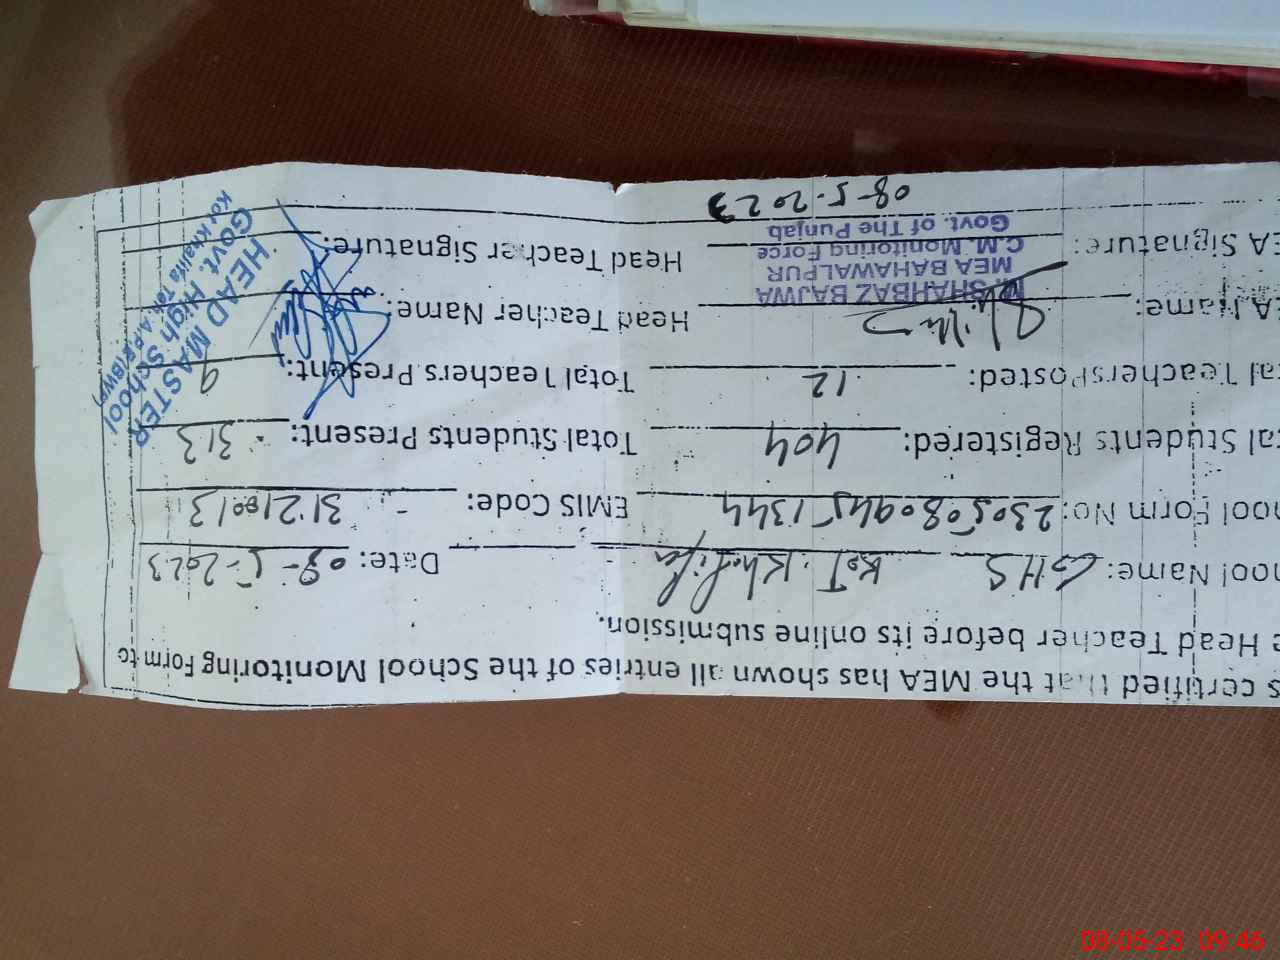 s certified that the MEA has shown all entries of the School Monitoring Form to
e Head Teacher before its online submission.
ool Name: GHS Kot Khalifa Date: 08-5-2023
ool Form No: 230508094451344 EMIS Code: 31210013
tal Students Registered: 404 Total Students Present: 313
tal Teachers Posted: 12 Total Teachers Present: 9
EA Name: Head Teacher Name:
SHAHBAZ BAJWA
MEA BAHAWALPUR
C.M. Monitoring Force
Govt. of The Punjab
EA Signature: Head Teacher Signature:
08-5-2023
HEAD MASTER
Govt. High School
Kot Khalifa Teh. A.P.E(BWP)
08-05-23 09:46